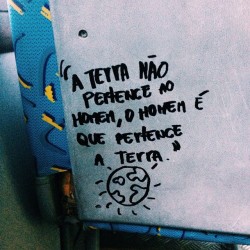 "A TERRA NÃO
PERTENCE AO
HOMEM, O HOMEM É
QUE PERTENCE
A TERRA."